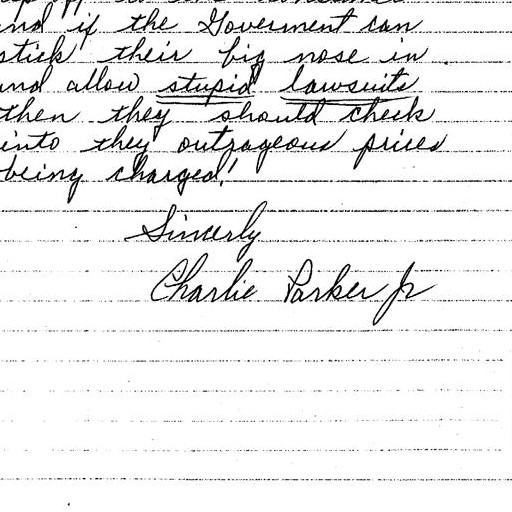 and if the Goverment can
stick their big nose in
and allow stupid lawsuits
then they should check
into they outrageous prices
being charged!
Sincerly
Charlie Parker Jr